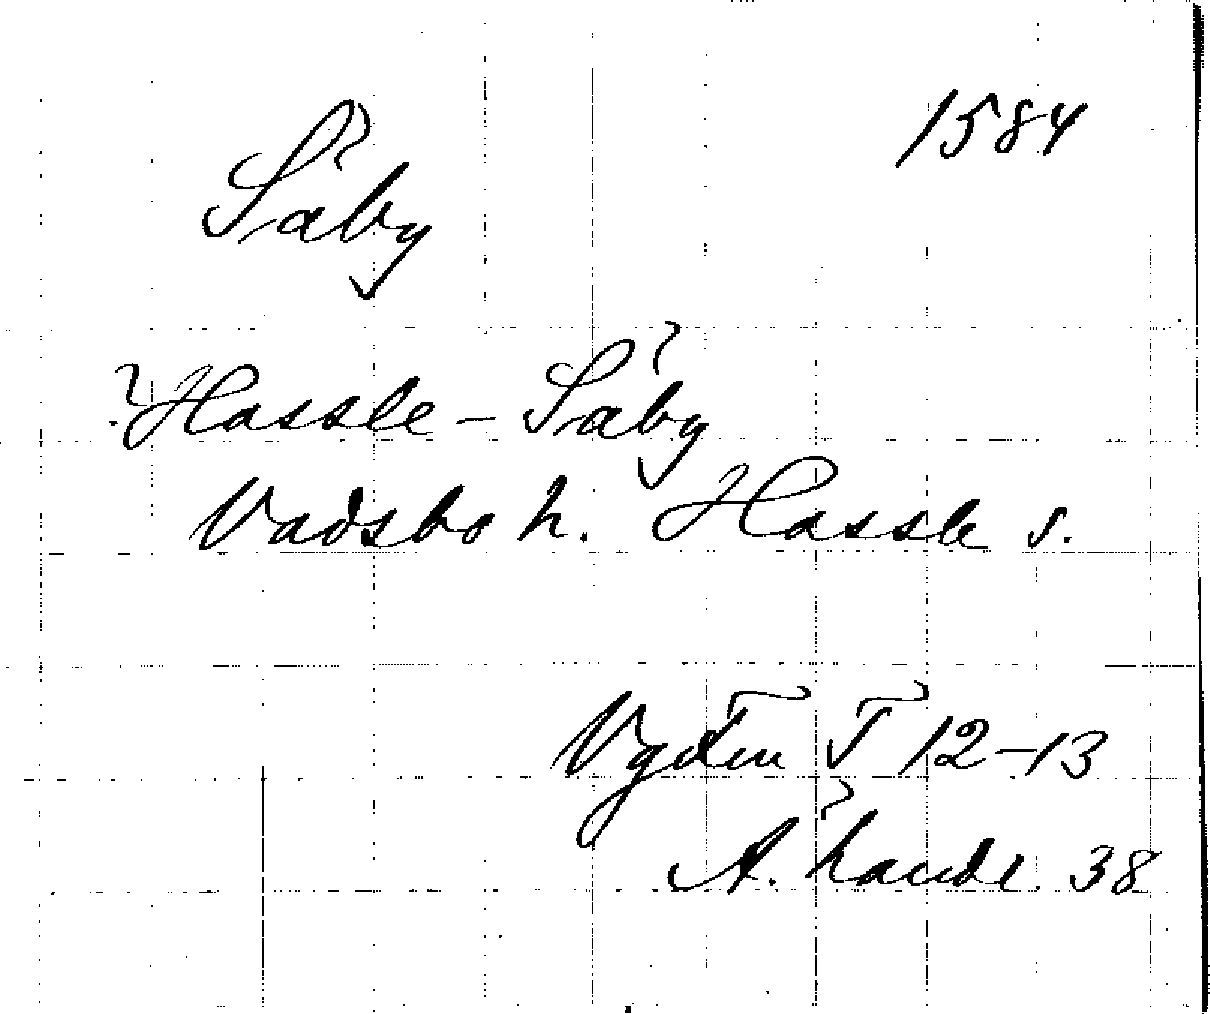 Såby 1584
? Hassle-Såby
Vadsbo h. Hassle s.
Vgötln T 12-13
A. handl 38